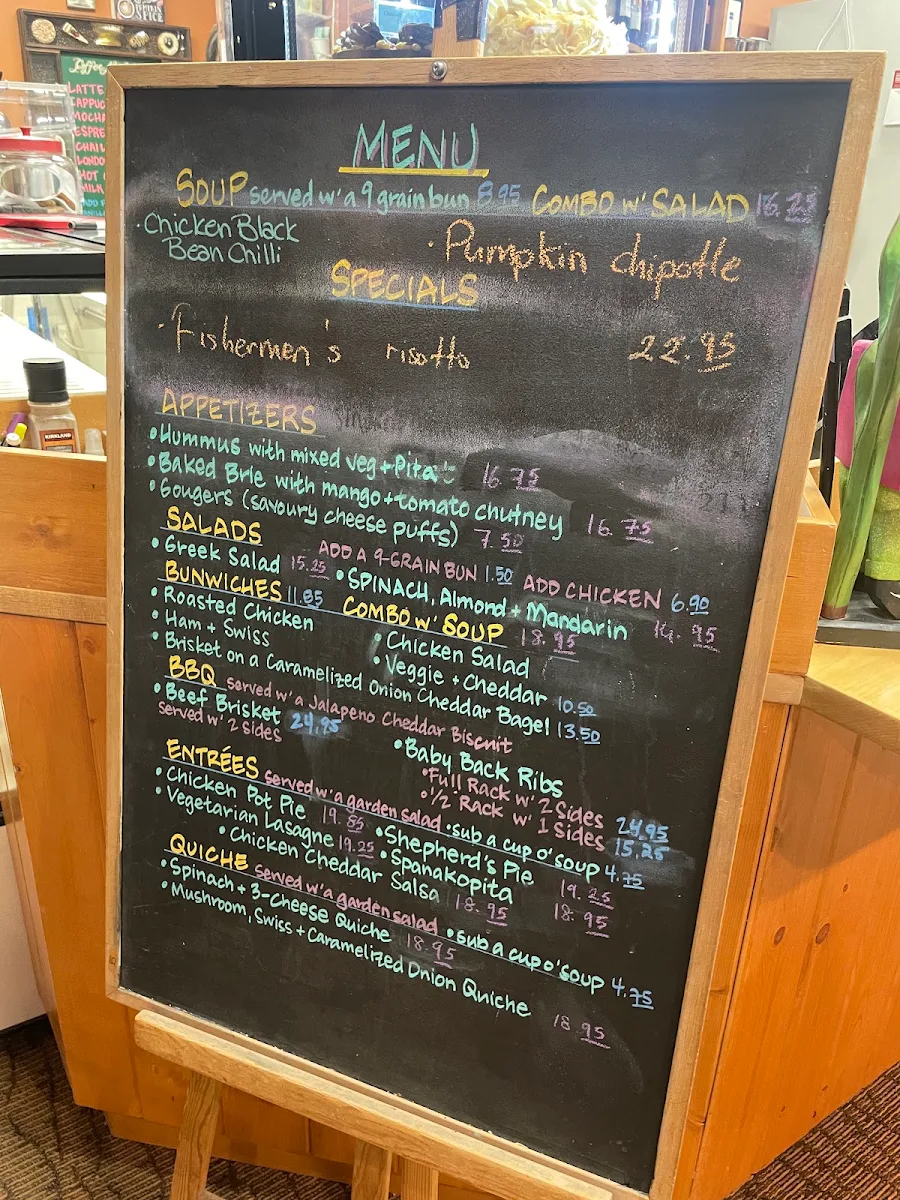 LATTE
CAPPUC
MOCHA
ESPRE
CHAI L
LONDO
HOT C
MILK
KIRKLAND
MENU
SOUP served w' a 9 grain bun 8.95 COMBO w' SALAD 16.25
• Chicken Black Bean Chilli
• Pumpkin chipotle
SPECIALS
• Fishermen's risotto 22.95
APPETIZERS
• Hummus with mixed veg + Pita 16.75
• Baked Brie with mango + tomato chutney 16.75
• Gougers (savoury cheese puffs) 7.50
SALADS ADD A 9-GRAIN BUN 1.50 ADD CHICKEN 6.90
• Greek Salad 15.25 • SPINACH, Almond + Mandarin 14.95
BUNWICHES 11.85 COMBO w' SOUP 18.95
• Roasted Chicken • Chicken Salad
• Ham + Swiss • Veggie + Cheddar 10.50
• Brisket on a Caramelized Onion Cheddar Bagel 13.50
BBQ served w' a Jalapeno Cheddar Biscuit
• Beef Brisket 24.95
served w' 2 sides
• Baby Back Ribs
• Full Rack w' 2 Sides 24.95
• 1/2 Rack w' 1 Sides 15.25
ENTRÉES served w' a garden salad • sub a cup o' soup 4.75
• Chicken Pot Pie 19.85 • Shepherd's Pie 19.25
• Vegetarian Lasagne 19.25 • Spanakopita 18.95
• Chicken Cheddar Salsa 18.95
QUICHE served w' a garden salad • sub a cup o' soup 4.75
• Spinach + 3-Cheese Quiche 18.95
• Mushroom, Swiss + Caramelized Onion Quiche 18.95